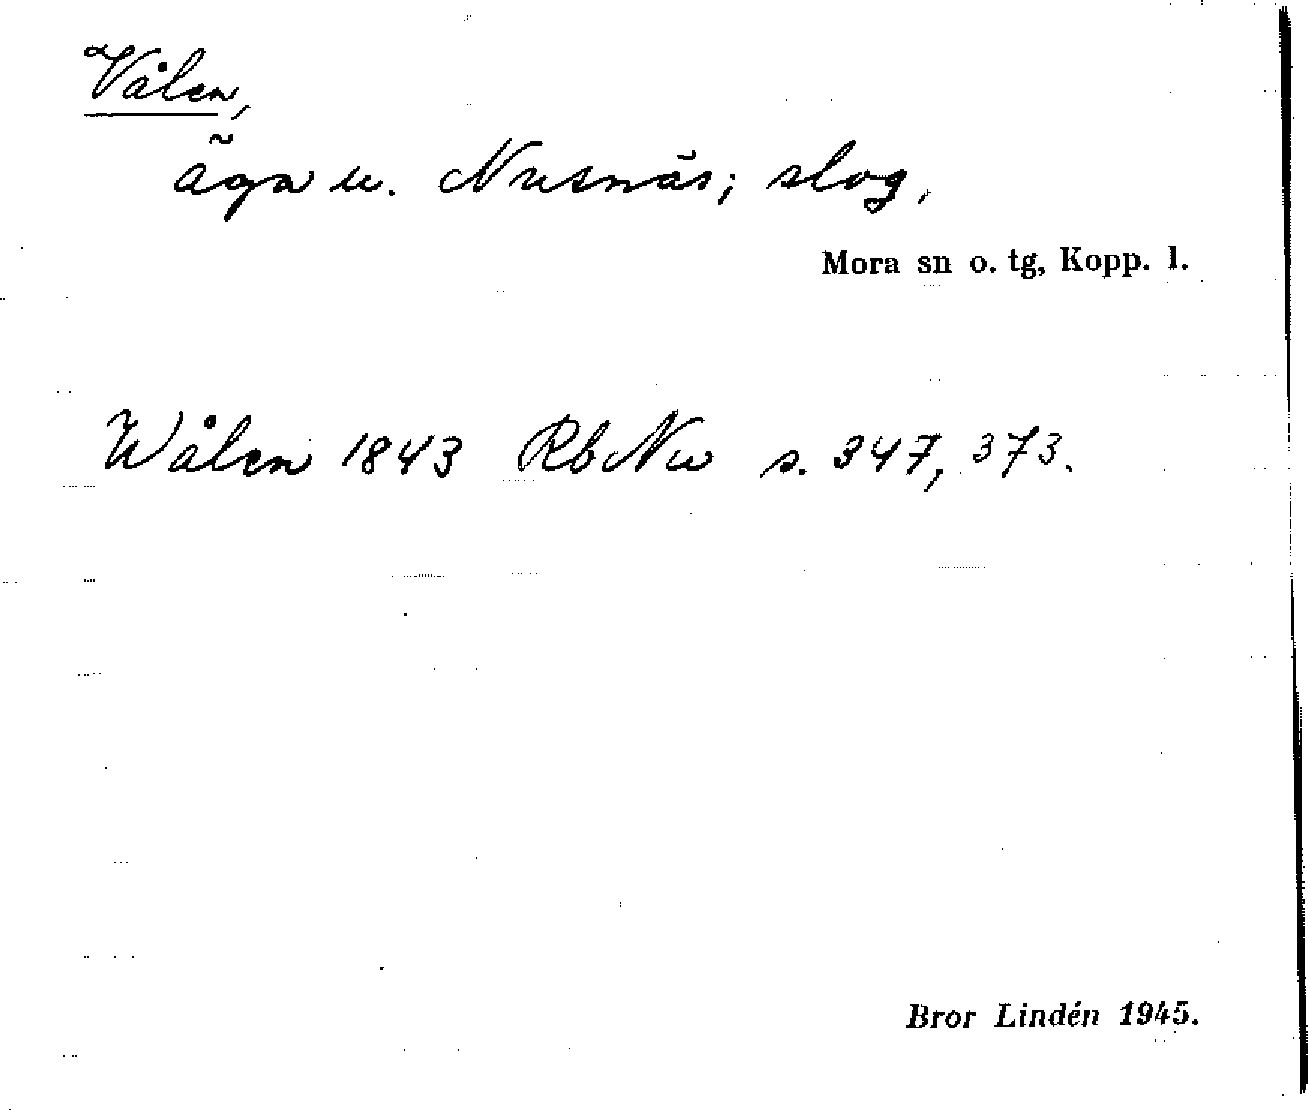 Vålen,
äga u. Nusnäs; slog.
Mora sn o. tg, Kopp. l.
Wålen 1843 Rb Nw s. 347, 373.
Bror Lindén 1945.